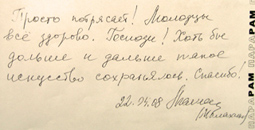 Просто потрясает! Молодцы
всё здорово. Господи! Хоть бы
дольше и дальше такое
искусство сохранялось. Спасибо!
22.04.08
РАМ РАРА РАМ